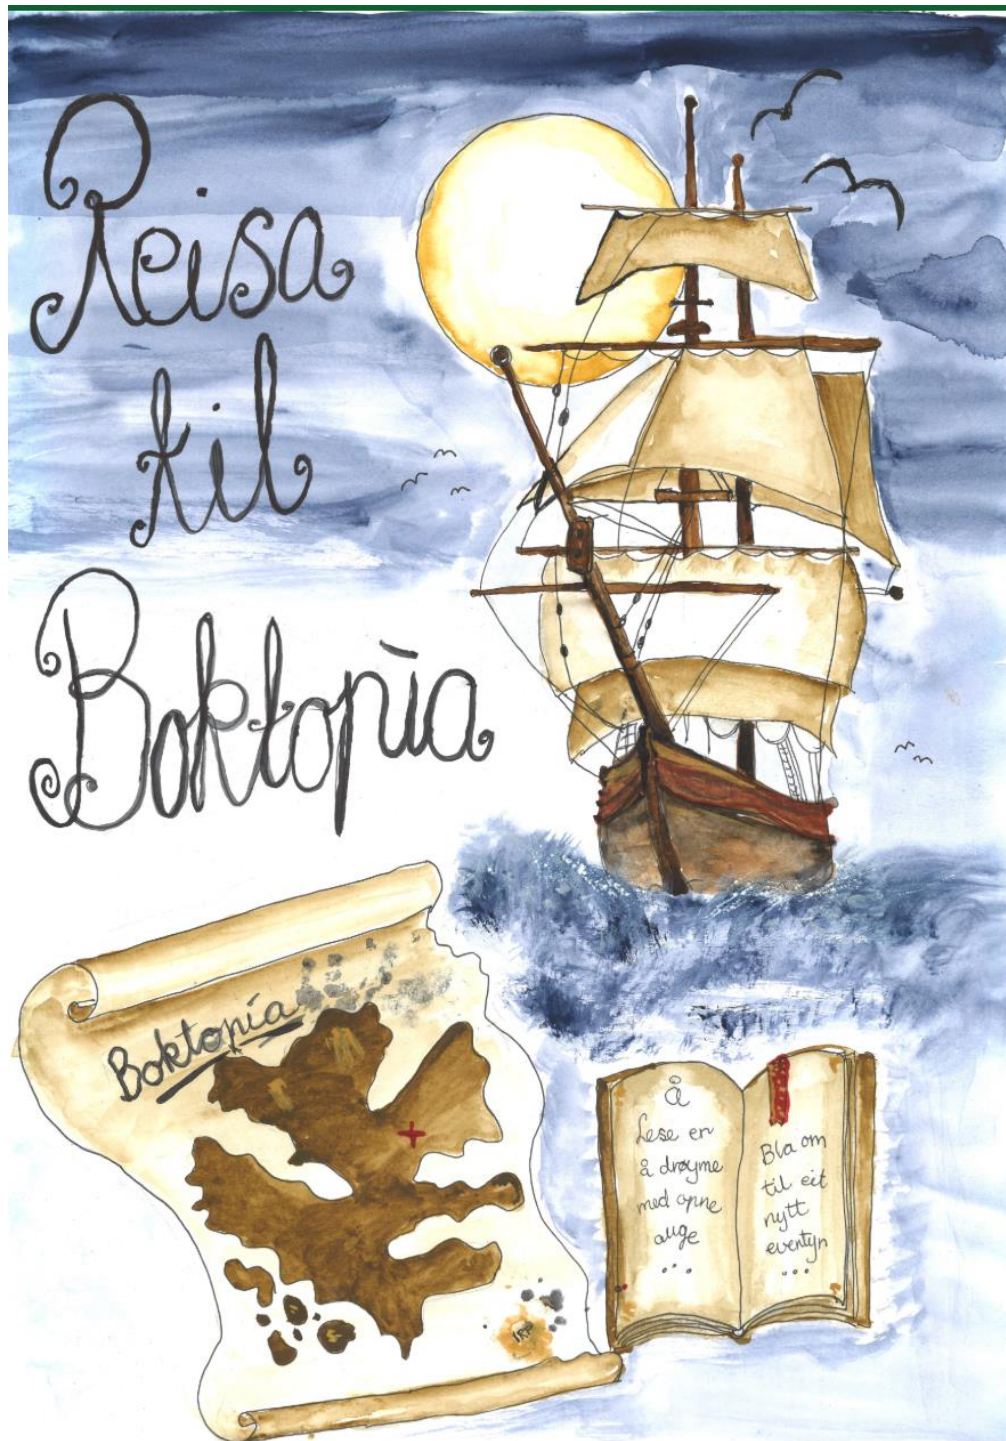 Reisa
til
Boktopia
Boktopia
Å
Lese er
å drøyme
med opne
auge
...
Bla om
til eit
nytt
eventyr
...